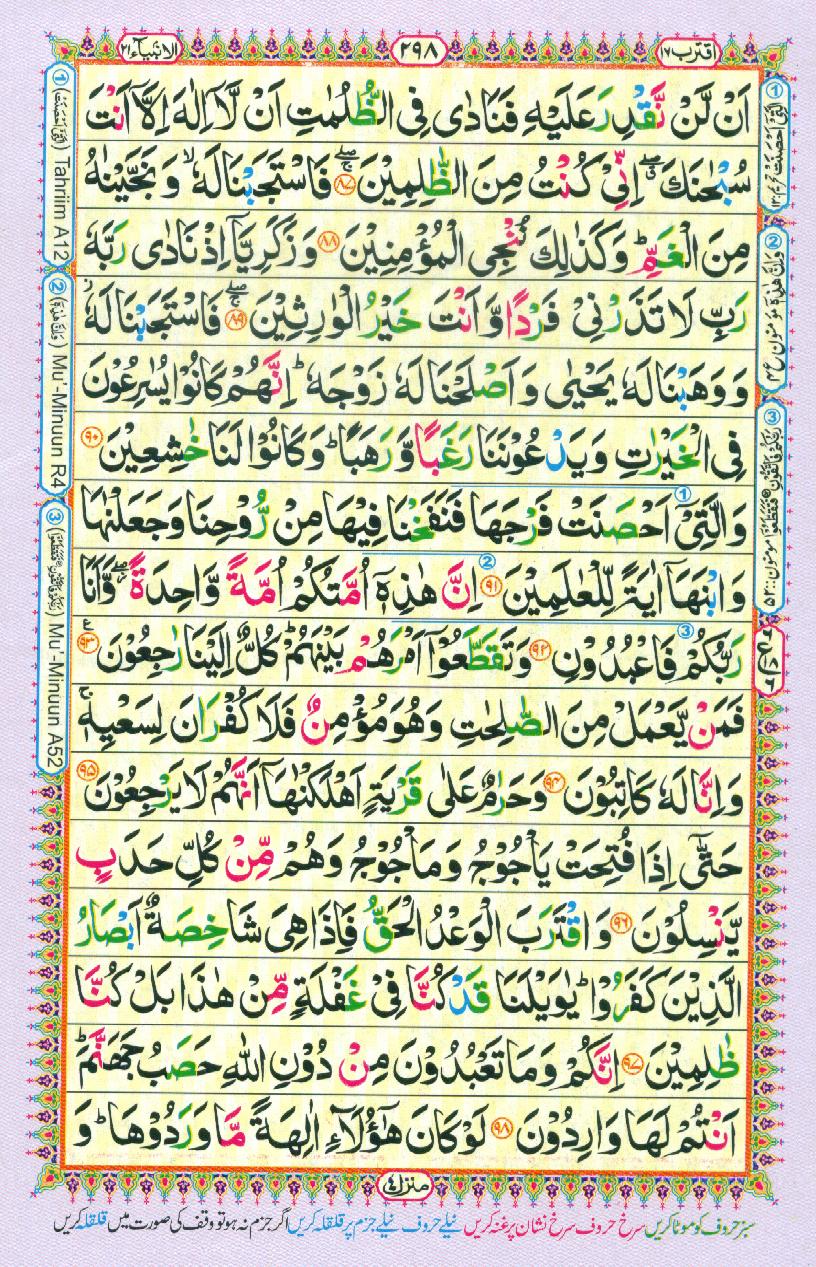 اقترب ١٧
٢٩٨
الانبيآء ٢١
اَنْ لَّنْ نَّقْدِرَ عَلَيْهِ فَنَادٰى فِى الظُّلُمٰتِ اَنْ لَّاۤ اِلٰهَ اِلَّاۤ اَنْتَ
سُبْحٰنَكَ ۖۗ اِنِّىْ كُنْتُ مِنَ الظّٰلِمِيْنَ ۖۚ ﴿٨٧﴾ فَاسْتَجَبْنَا لَهٗ ۙ وَ نَجَّيْنٰهُ
مِنَ الْغَمِّ ؕ وَكَذٰلِكَ نُنْجِى الْمُؤْمِنِيْنَ ﴿٨٨﴾ وَ زَكَرِيَّاۤ اِذْ نَادٰى رَبَّهٗ
رَبِّ لَا تَذَرْنِىْ فَرْدًا وَّ اَنْتَ خَيْرُ الْوٰرِثِيْنَ ۖۚ ﴿٨٩﴾ فَاسْتَجَبْنَا لَهٗ ز
وَ وَهَبْنَا لَهٗ يَحْيٰى وَ اَصْلَحْنَا لَهٗ زَوْجَهٗ ؕ اِنَّهُمْ كَانُوْا يُسٰرِعُوْنَ
فِى الْخَيْرٰتِ وَ يَدْعُوْنَنَا رَغَبًا وَّ رَهَبًا ؕ وَ كَانُوْا لَنَا خٰشِعِيْنَ ﴿٩٠﴾
وَالَّتِىْۤ اَحْصَنَتْ فَرْجَهَا فَنَفَخْنَا فِيْهَا مِنْ رُّوْحِنَا وَ جَعَلْنٰهَا
وَ ابْنَهَاۤ اٰيَةً لِّلْعٰلَمِيْنَ ﴿٩١﴾ اِنَّ هٰذِهٖۤ اُمَّتُكُمْ اُمَّةً وَّاحِدَةً ۖؗ وَّ اَنَا
رَبُّكُمْ فَاعْبُدُوْنِ ﴿٩٢﴾ وَ تَقَطَّعُوْۤا اَمْرَهُمْ بَيْنَهُمْ ؕ كُلٌّ اِلَيْنَا رٰجِعُوْنَ ﴿٩٣﴾
فَمَنْ يَّعْمَلْ مِنَ الصّٰلِحٰتِ وَهُوَ مُؤْمِنٌ فَلَا كُفْرَانَ لِسَعْيِهٖ ۚ
وَ اِنَّا لَهٗ كَاتِبُوْنَ ﴿٩٤﴾ وَ حَرٰمٌ عَلٰى قَرْيَةٍ اَهْلَكْنٰهَاۤ اَنَّهُمْ لَا يَرْجِعُوْنَ ﴿٩٥﴾
حَتّٰۤى اِذَا فُتِحَتْ يَاْجُوْجُ وَ مَاْجُوْجُ وَ هُمْ مِّنْ كُلِّ حَدَبٍ
يَّنْسِلُوْنَ ﴿٩٦﴾ وَ اقْتَرَبَ الْوَعْدُ الْحَقُّ فَاِذَا هِىَ شَاخِصَةٌ اَبْصَارُ
الَّذِيْنَ كَفَرُوْا ؕ يٰوَيْلَنَا قَدْ كُنَّا فِىْ غَفْلَةٍ مِّنْ هٰذَا بَلْ كُنَّا
ظٰلِمِيْنَ ﴿٩٧﴾ اِنَّكُمْ وَ مَا تَعْبُدُوْنَ مِنْ دُوْنِ اللّٰهِ حَصَبُ جَهَنَّمَ ؕ
اَنْتُمْ لَهَا وَارِدُوْنَ ﴿٩٨﴾ لَوْ كَانَ هٰۤؤُلَآءِ اٰلِهَةً مَّا وَرَدُوْهَا ؕ وَ
منزل ٤
سبز حروف کو موٹا کریں سرخ حروف سرخ نشان پر غنہ کریں نیلے حروف نیلے جزم پر قلقلہ کریں اگر جزم نہ ہو تو وقف کی صورت میں قلقلہ کریں
① Tahriim A12
② Mu'-Minuun R4
③ Mu'-Minuun A52